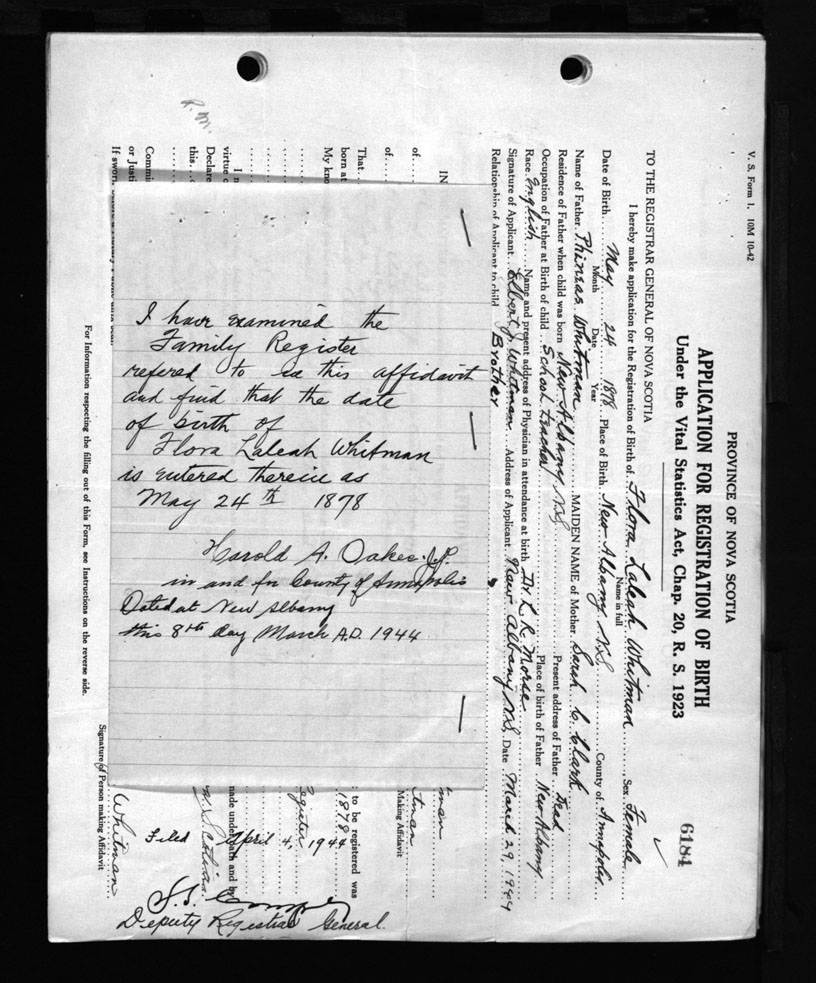 V. S. Form 1. 10M 10-42
PROVINCE OF NOVA SCOTIA
6184
APPLICATION FOR REGISTRATION OF BIRTH
Under the Vital Statistics Act, Chap. 20, R. S. 1923
TO THE REGISTRAR GENERAL OF NOVA SCOTIA
I hereby make application for the Registration of Birth of Flora Laleah Whitman Sex Female
Name in full
Date of Birth May 24 1878 Place of Birth New Albany N.S. County of Annapolis
Month Date Year
Name of Father Phinias Whitman MAIDEN NAME of Mother Sarah C. Clark
Residence of Father when child was born New Albany N.S. Present address of Father Dead
Occupation of Father at Birth of child School teacher Place of birth of Father New Albany
Race English Name and present address of Physician in attendance at birth Dr L. R. Morse
Signature of Applicant Elbert J. Whitman Address of Applicant New Albany N.S. Date March 29, 1944
Relationship of Applicant to child Brother
IN
of
of
That
born at
My kno
I
virtue
Declare
this
Commi
or Justi
If sworn
R. M.
I have examined the
Family Register
refered to in this affidavit
and find that the date
of birth of
Flora Laleah Whitman
is entered therein as
May 24th 1878
Harold A. Oakes J.P.
in and for County of Annapolis
Dated at New Albany
this 8th day March A.D. 1944
man
tman
Making Affidavit
to be registered was
1878
egister
made under oath and by
Filed April 4, 1944
Deputy Registrar General.
Whitman
Signature of Person making Affidavit
For Information respecting the filling out of this Form, see Instructions on the reverse side.